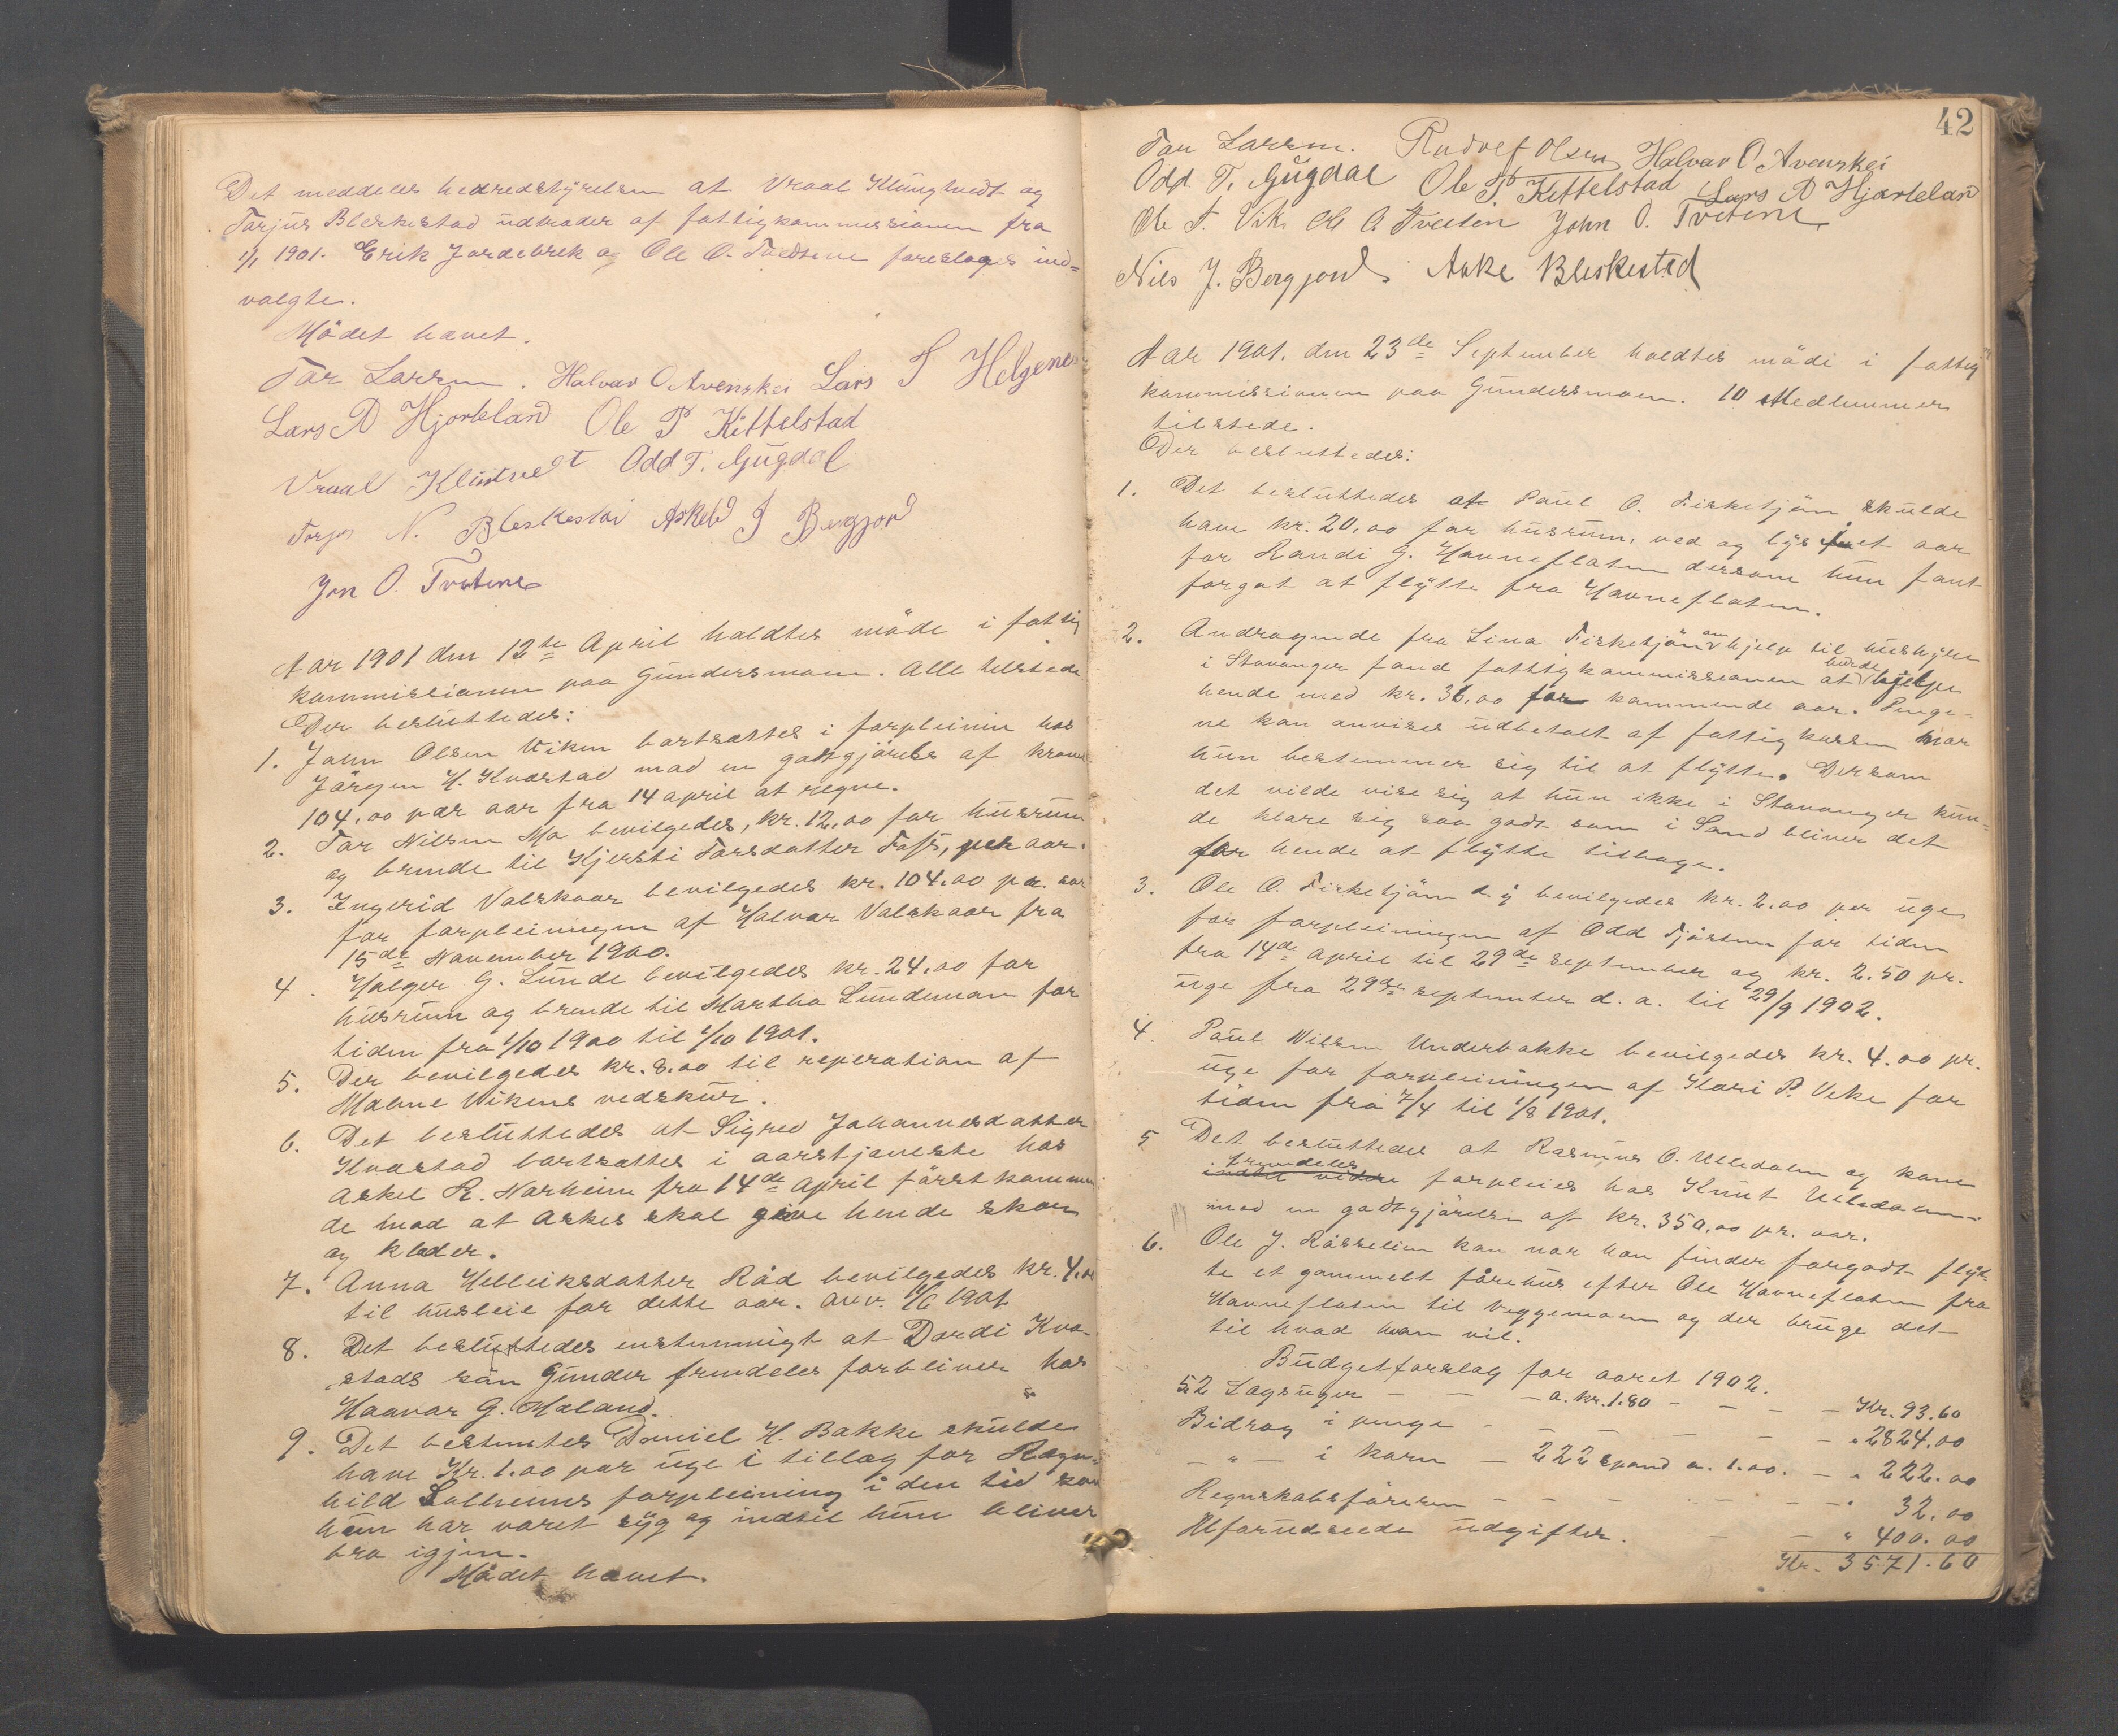 Det meddeles hedredstyrelsen at Vraal Klungtvedt og
Torjus Bleskestad udtræder af fattigkommissionen fra
1/1 1901. Erik Jordebrek og Ole O. Tvedtene foreslages ind-
valgte.
Mödet hævet.
Tor Larsen. Halvar O Avenskei Lars T Helgenes
Lars A Hjorteland Ole P Kittelstad
Vraal Klûntvedt Odd T. Gûgdal
Torjus N. Bleskestad Askeld J Bergjord
Jon O. Tvetene
Aar 1901 den 12te April holdtes möde i fattig
kommissionen paa Gundersmoen. Alle tilstede
Der besluttedes:
1. John Olsen Viken bortsættes i forpleinin hos
Jörgen H. Kvæstad mod en godtgjörels af kroner
104,00 pær aar fra 14 april at regne.
2. Tor Nilsen Mo bevilgedes, kr. 12,00 for husrum
og brende til Kjersti Torsdatter Foss, per aar.
3. Ingerid Valskaar bevilgedes kr. 104.00 pr. aar
for forpleiningen af Halvor Valskaar fra
15de November 1900.
4. Holger G. Lunde bevilgedes kr. 24,00 for
husrum og brende til Martha Lundemoen for
tiden fra 1/10 1900 til 1/10 1901.
5. Der bevilgedes kr. 8.00 til reperation af
Malene Vikens vedskur.
6. Det besluttedes at Sigrid Johannesdatter
Kvæstad bortsættes i aarstjeneste hos
Askel R. Norheim fra 14de april förstkommen
de mod at Askel skal give hende skoen
og klæder.
7. Anna Helleiksdatter Röd bevilgedes kr. 4.00
til husleie for dette aar. anv. 11/6 1901
8. Det besluttedes enstemmigt at Dordi Kvæ-
stads sön Gunder fremdeles forbliver hos
Haavar G. Moland.
9. Det bestemtes Daniel H. Bakke skulde
have Kr. 1.00 pær uge i tillæg for Ragn-
hild Solheims forpleining i den tid som
hun har været syg og indtil hun bliver
bra igjen.
Mödet hævet.
42
Tor Larsen. Rudolf Olsen Halvar O Avenskei
Odd T. Gûgdal Ole P. Kittelstad Lars A Hjorteland
Ole T. Vik Ole O Tveeten John O. Tvetene
Nils J. Bergjord. Aske Bleskestad
Aar 1901. den 23de September holdtes möde i fattig
kommissionen paa Gundersmoen. 10 Medlemmer
tilstede.
Der besluttedes:
1. Det besluttedes at Paul O. Fisketjön skulde
have kr. 20,00 for husrum, ved og lys et aar
for Randi G. Havneflaten dersom hun fant
forgot at flytte fra Havneflaten.
2. Andragende fra Lina Fisketjön om hjelp til husleie
i Stavanger fand fattigkommissionen at burde hjelpe
hende med kr. 36,00 for kommende aar. Penge-
ne kan anvises udbetalt af fattigkassen naar
hun bestemmer sig til at flytte. Dersom
det vilde vise sig at hun ikke i Stavanger kun-
de klare sig saa godt som i Sand bliver det
for hende at flytte tilbage.
3. Ole O. Fisketjön d.y bevilgedes kr. 2.00 per uge
for forpleiningen af Odd Fjörtun for tiden
fra 14de april til 29de september og kr. 2.50 pr.
uge fra 29de september d. a. til 29/9 1902.
4. Paul Nilsen Underbakke bevilgedes kr. 4.00 pr.
uge for forpleiningen af Kari P. Veke for
tiden fra 7/4 til 1/8 1901.
5 Det besluttedes at Rasmus O. Ulledalen og kone
fremdeles
indtil videre forpleies hos Knut Ulledalen
mod en godtgjörelse af kr. 350,00 pr. aar.
6. Ole J. Rösselien kan naar han finder forgodt flyt-
te et gammelt fårehus efter Ole Havneflaten fra
Havneflaten til Veggemoen og der bruge det
til hvad han vil.
Budgetforslag for aaret 1902.
52 Lægsuger — — a. kr. 1.80 — — — Kr. 93.60
Bidrag i penge — — — — — — „ 2824.00
— „ — i korn — 222 spand a. 1.00. — „ 222.00
Regnskabsföreren — — — — — „ 32.00
Uforudseede udgifter. — — „ 400.00
Kr. 3571.60